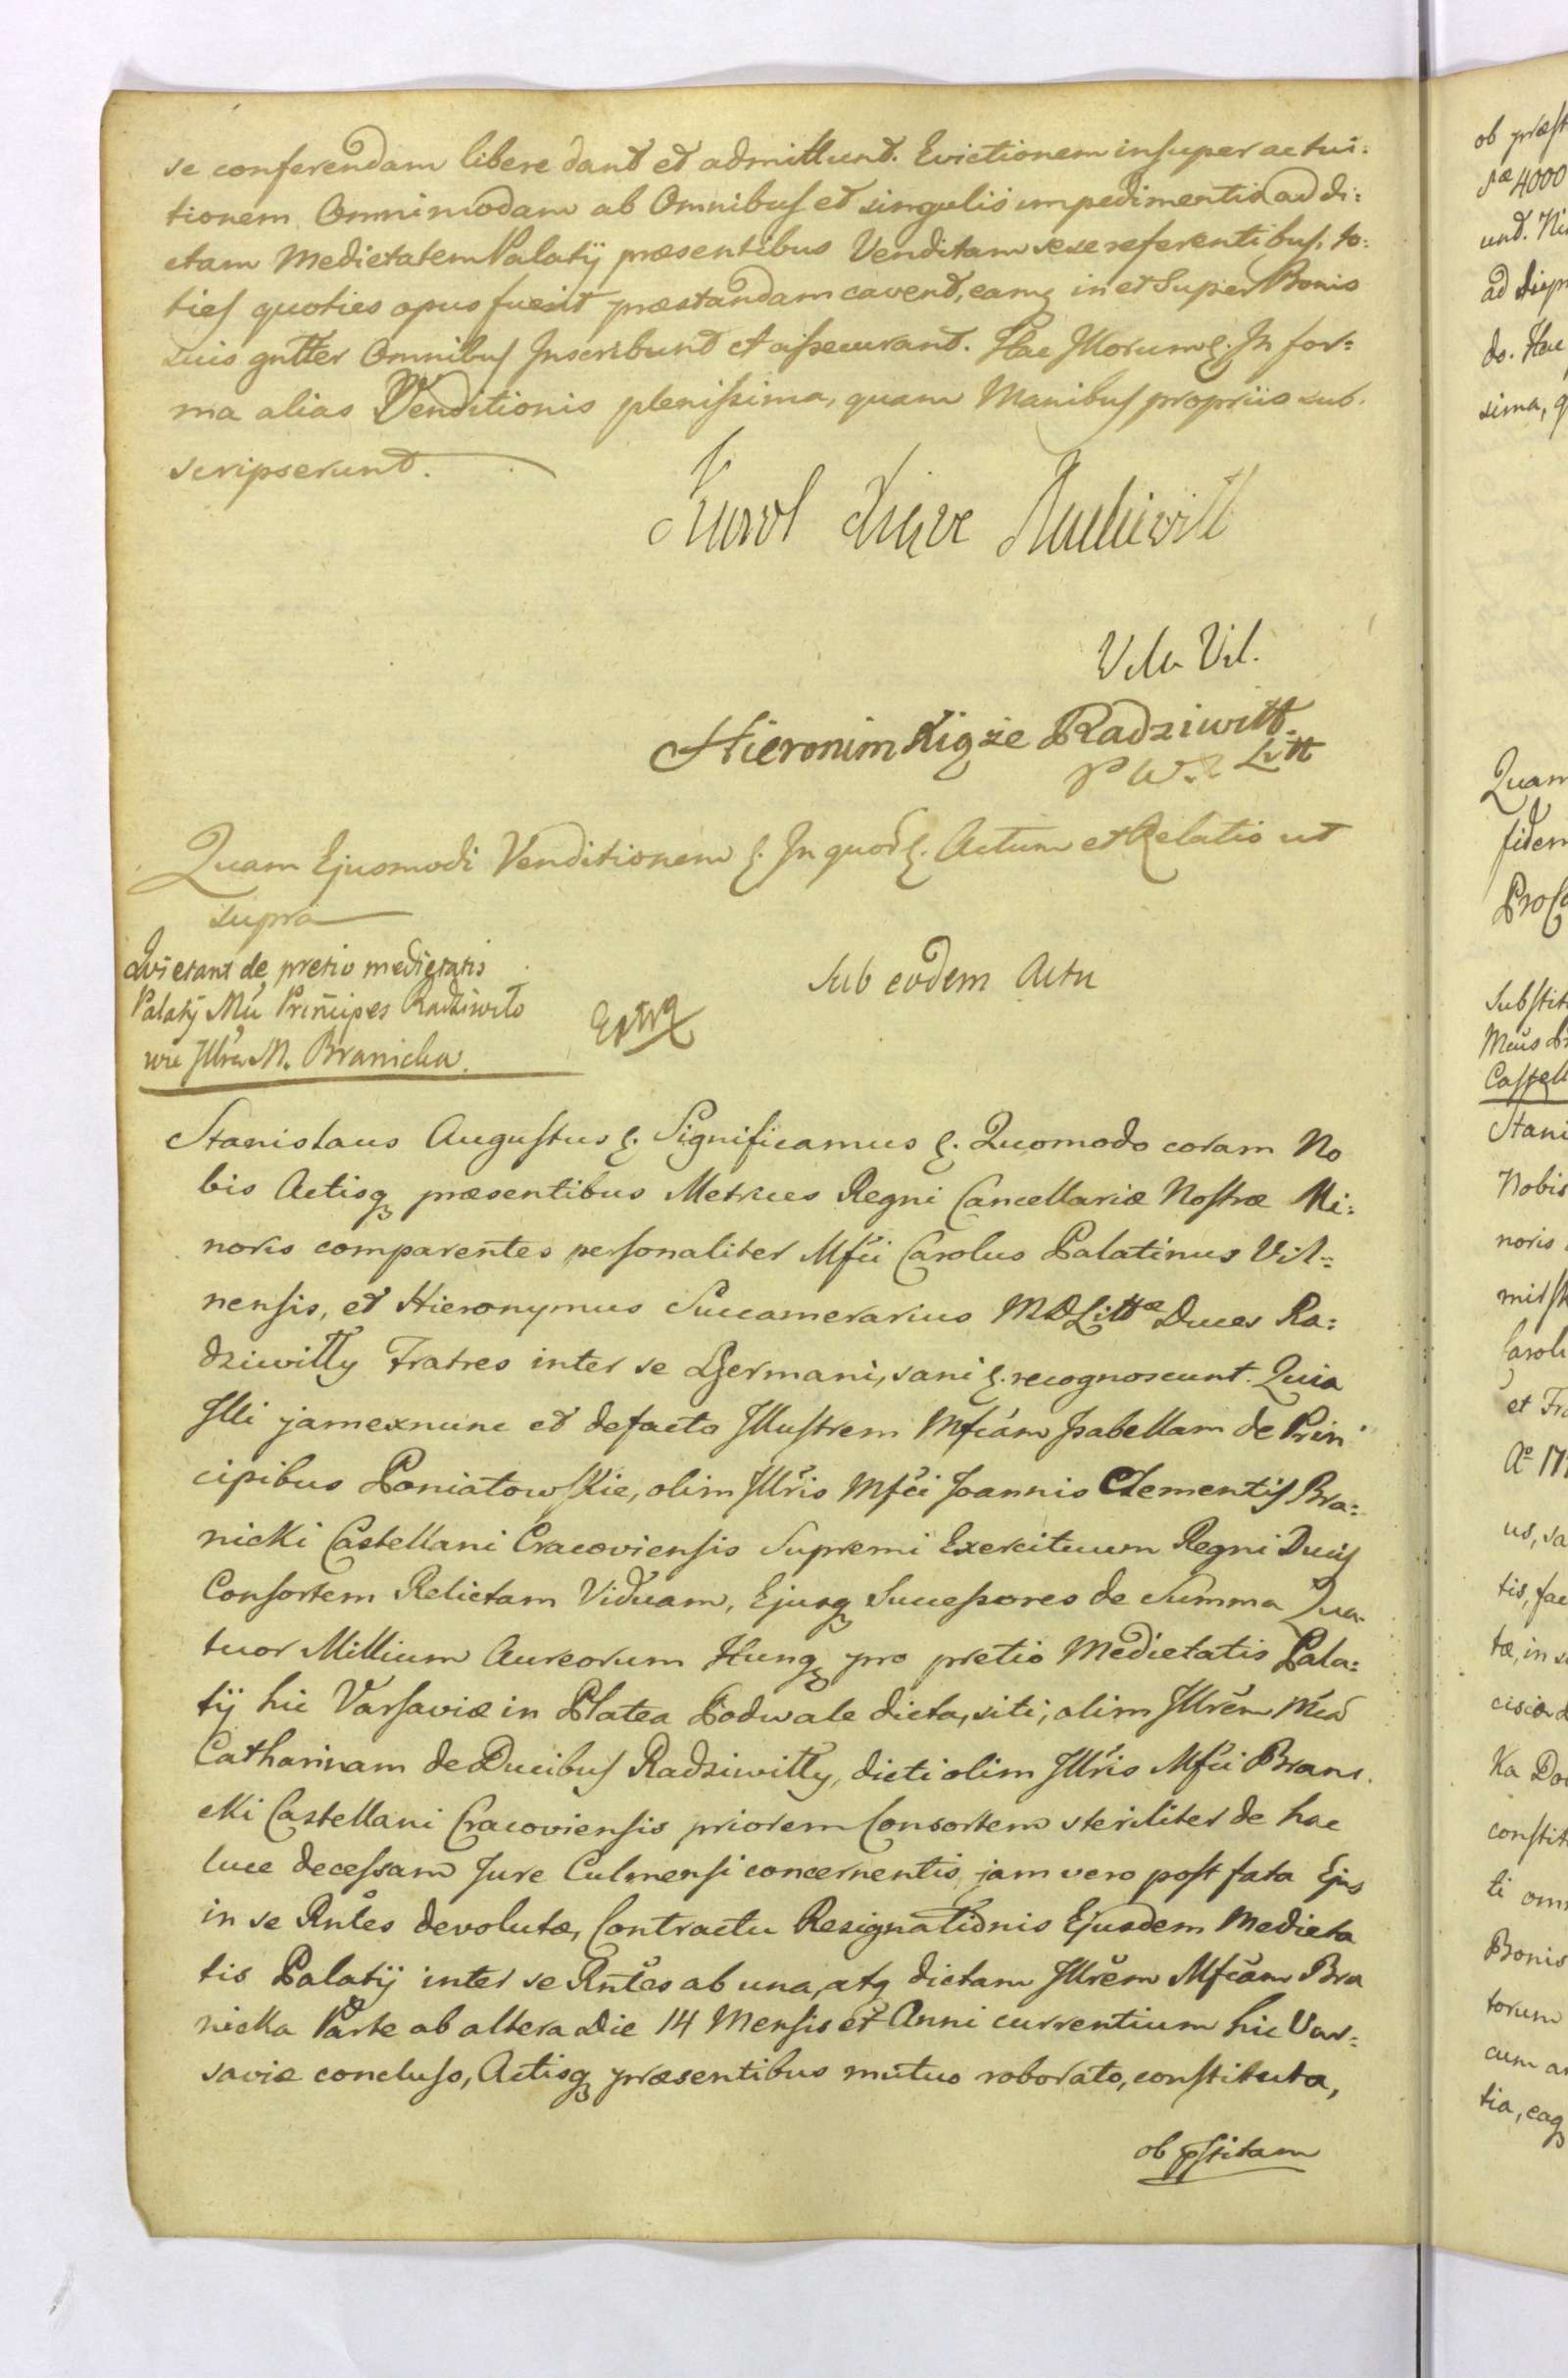 se conferendam libere dant et admittunt. Evictionem insuper ac tui:
tionem Omnimodam ab Omnibus et singulis impedimentis ad di:
ctam Medietatem Palatÿ præsentibus Venditam sese referentibus, to:
ties quoties opus fuerit præstandam cavent, eamq in et Super Bonis
suis gntter Omnibus Inscribunt et assecurant. Hac Illorum &. In for=
ma alias Venditionis plenissima, quam Manibus propriis sub.
scripserunt.
Karol Xiąże Radziwiłł
Wda Wil.
Hieronim Xiąże Radziwiłł
P W. X Litt
Quam Ejusmodi Venditionem &. In quor &. Actum et Relatio ut
supra
Quietant de pretio medietatis
Palatÿ Mci Principes Radziwiło
wie Illrem M. Branicka.
Extra
Sub eodem Actu
Stanislaus Augustus &. Significamus &. Quomodo coram No
bis Actisq præsentibus Metrices Regni Cancellariæ Nostræ Mi:
noris comparentes personaliter Mfci Carolus Palatinus Vil=
nensis, et Hieronymus Succamerarius MDLittæ Duces Ra:
dziwiłły Fratres inter se Germani, sani &. recognoscunt. Quia
Illi jam ex nunc et de facto Illustrem Mfcam Isabellam de Prin
cipibus Poniatowskie, olim Illris Mfci Joannis Clementis Bra=
nicki Castellani Cracoviensis Supremi Exercituum Regni Ducis
Consortem Relictam Viduam, Ejusq Successores de Summa Qua-
tuor Millium Aureorum Hung pro pretio Medietatis Pala:
tÿ hic Varsaviæ in Platea Podwale dicta, siti, olim Illrem Mcam
Catharinam de Ducibus Radziwiłły, dicti olim Illris Mfci Brani.
cki Castellani Cracoviensis priorem Consortem steriliter de hac
luce decessam Jure Culmensi concernentis, jam vero post fata Ejus
in se Rntes devolutæ, Contractu Resignationis Ejusdem Medieta
tis Palatÿ inter se Rntes ab una, atq dictam Illrem Mfcam Bra
nicka Parte ab altera Die 14 Mensis et Anni currentium hic Var=
saviæ concluso, Actisq præsentibus mutuo roborato, constituta,
ob pstitam
ob præst
sæ 4000
unt. Ni
ad disp
do. Hac
sima, q
Quam
fidem
Pro
Substit
Castell
Stani
Nobis
noris
Caroli
et Fra
Aº 17
us, sa
tis, fac
tæ, in s
Ka
constit
ti omn
Bonis
torum
cum a
tia, eaq